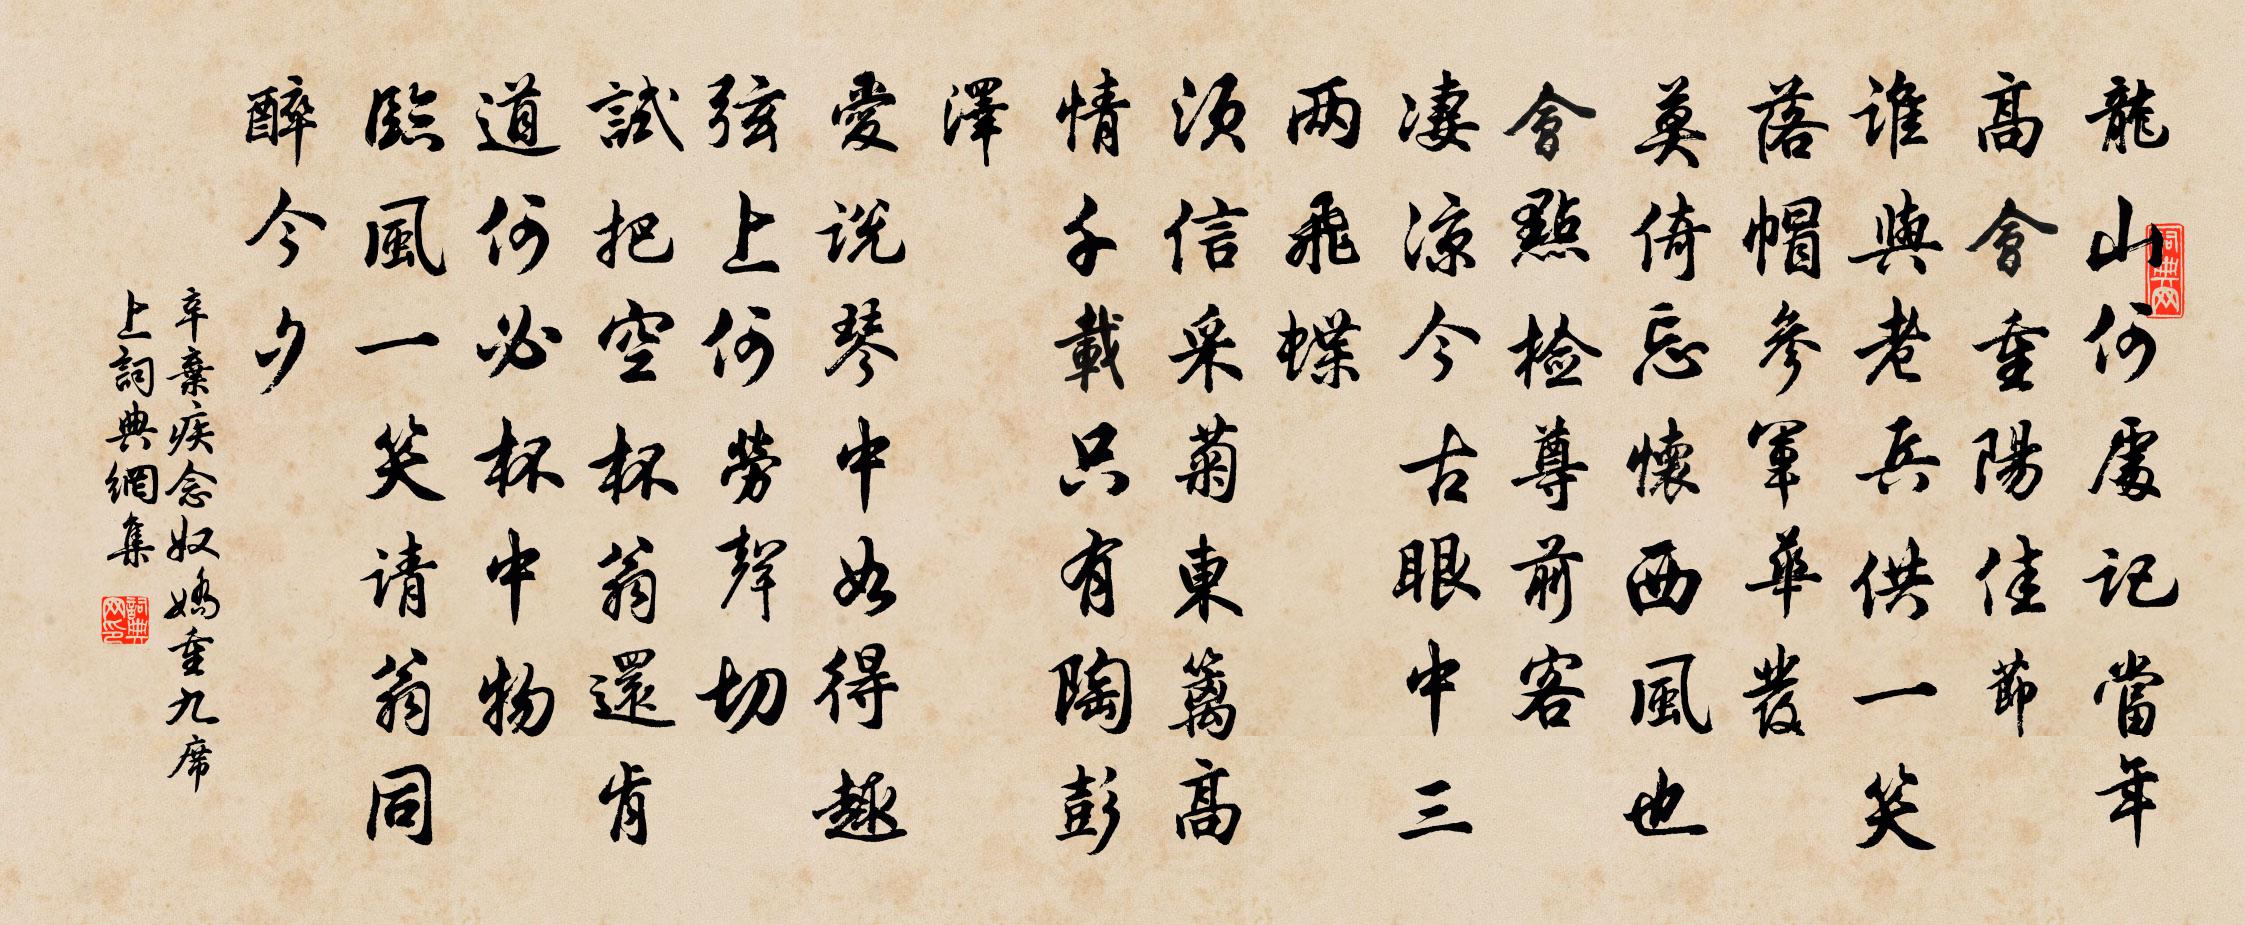 龍山何處記當年
高會重陽佳節
誰與老兵供一笑
落帽參軍華發
莫倚忘懷西風也
會點檢尊前客
凄涼今古眼中三
两飛蝶
須信采菊東籬高
情千載只有陶彭
澤
愛說琴中如得趣
弦上何勞聲切
試把空杯翁還肯
道何必杯中物
臨風一笑请翁同
醉今夕
辛棄疾念奴嬌重九席
上詞典網集
词典网
詞典网印